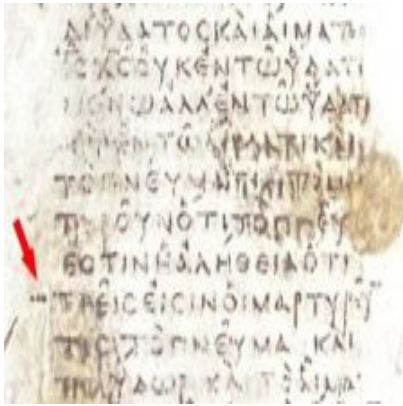 ΔΙΥΔΑΤΟϹΚΑΙΑΙΜΑΤΟϹ
ΙϹΧϹΟΥΚΕΝΤΩΥΔΑΤΙ
ΜΟΝΩΑΛΛΕΝΤΩΥΔΑΤΙ
ΚΑΙ
ΤΟΠΝΕΥΜΑ
ΤΟΠΝΕΥ
ΕϹΤΙΝΗΑΛΗΘΕΙΑΟΤΙ
ΤΡΕΙϹΕΙϹΙΝΟΙΜΑΡΤΥΡΟΥ
ΤΕϹΤΟΠΝΕΥΜΑΚΑΙ
ΤΟΥΔΩΡΚΑΙΤΟΑΙΜΑ